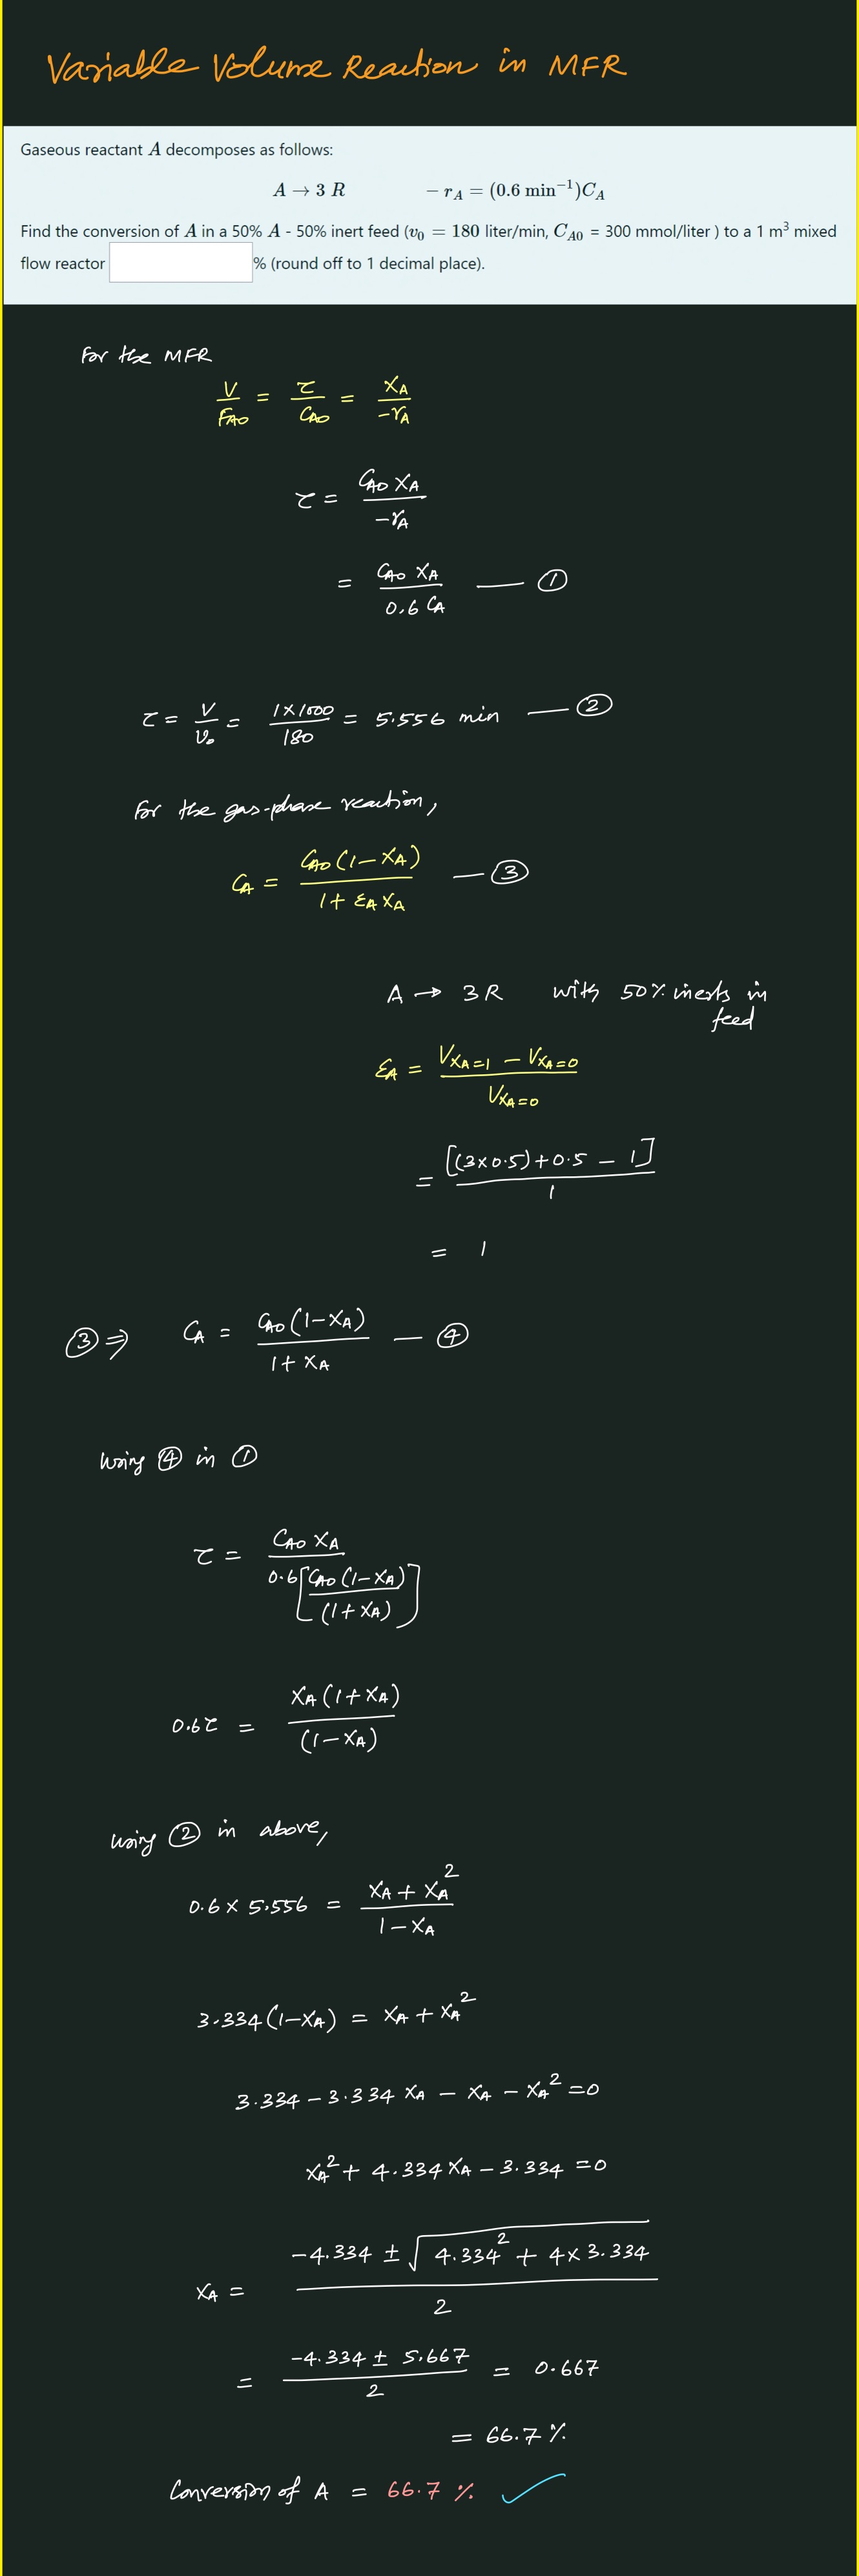 Variable Volume Reaction in MFR
Gaseous reactant A decomposes as follows:
A → 3 R    − r_A = (0.6 min⁻¹)C_A
Find the conversion of A in a 50% A - 50% inert feed (v₀ = 180 liter/min, C_A0 = 300 mmol/liter ) to a 1 m³ mixed
flow reactor % (round off to 1 decimal place).
For the MFR
V/F_A0 = τ/C_A0 = X_A/−r_A
τ = C_A0 X_A/−r_A
= C_A0 X_A/0.6 C_A — ①
τ = V/v₀ = 1×1000/180 = 5.556 min — ②
For the gas-phase reaction,
C_A = C_A0 (1−X_A)/1+ ε_A X_A — ③
A → 3R with 50% inerts in
feed
ε_A = V_XA=1 − V_XA=0/V_XA=0
= [(3×0.5)+0.5 − 1]/1
= 1
③ ⇒ C_A = C_A0 (1−X_A)/1+ X_A — ④
Using ④ in ①
τ = C_A0 X_A/0.6[C_A0 (1−X_A)/(1+X_A)]
0.6τ = X_A (1+X_A)/(1−X_A)
Using ② in above,
0.6 × 5.556 = X_A + X_A²/1−X_A
3.334(1−X_A) = X_A + X_A²
3.334 − 3.334 X_A − X_A − X_A² = 0
X_A² + 4.334 X_A − 3.334 = 0
X_A = −4.334 ± √4.334² + 4×3.334/2
= −4.334 ± 5.667/2 = 0.667
= 66.7 %
Conversion of A = 66.7 % ✓